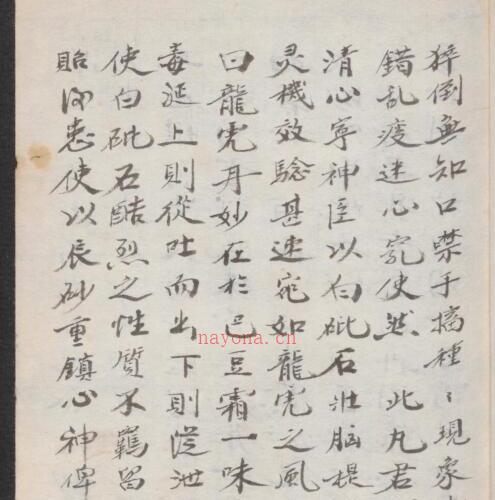 猝倒無知口噤手搐種〻現象
錯乱痰迷心竅使然 此丸君
清心寧神臣以白砒石壯脑提
灵機效驗甚速宛如龍虎之風
曰龍虎丹妙在於巴豆霜一味
毒延上則從吐而出下則從泄
使白砒石酷烈之性質不羈留
貽後患使以辰砂重鎮心神俾
nayona.cn